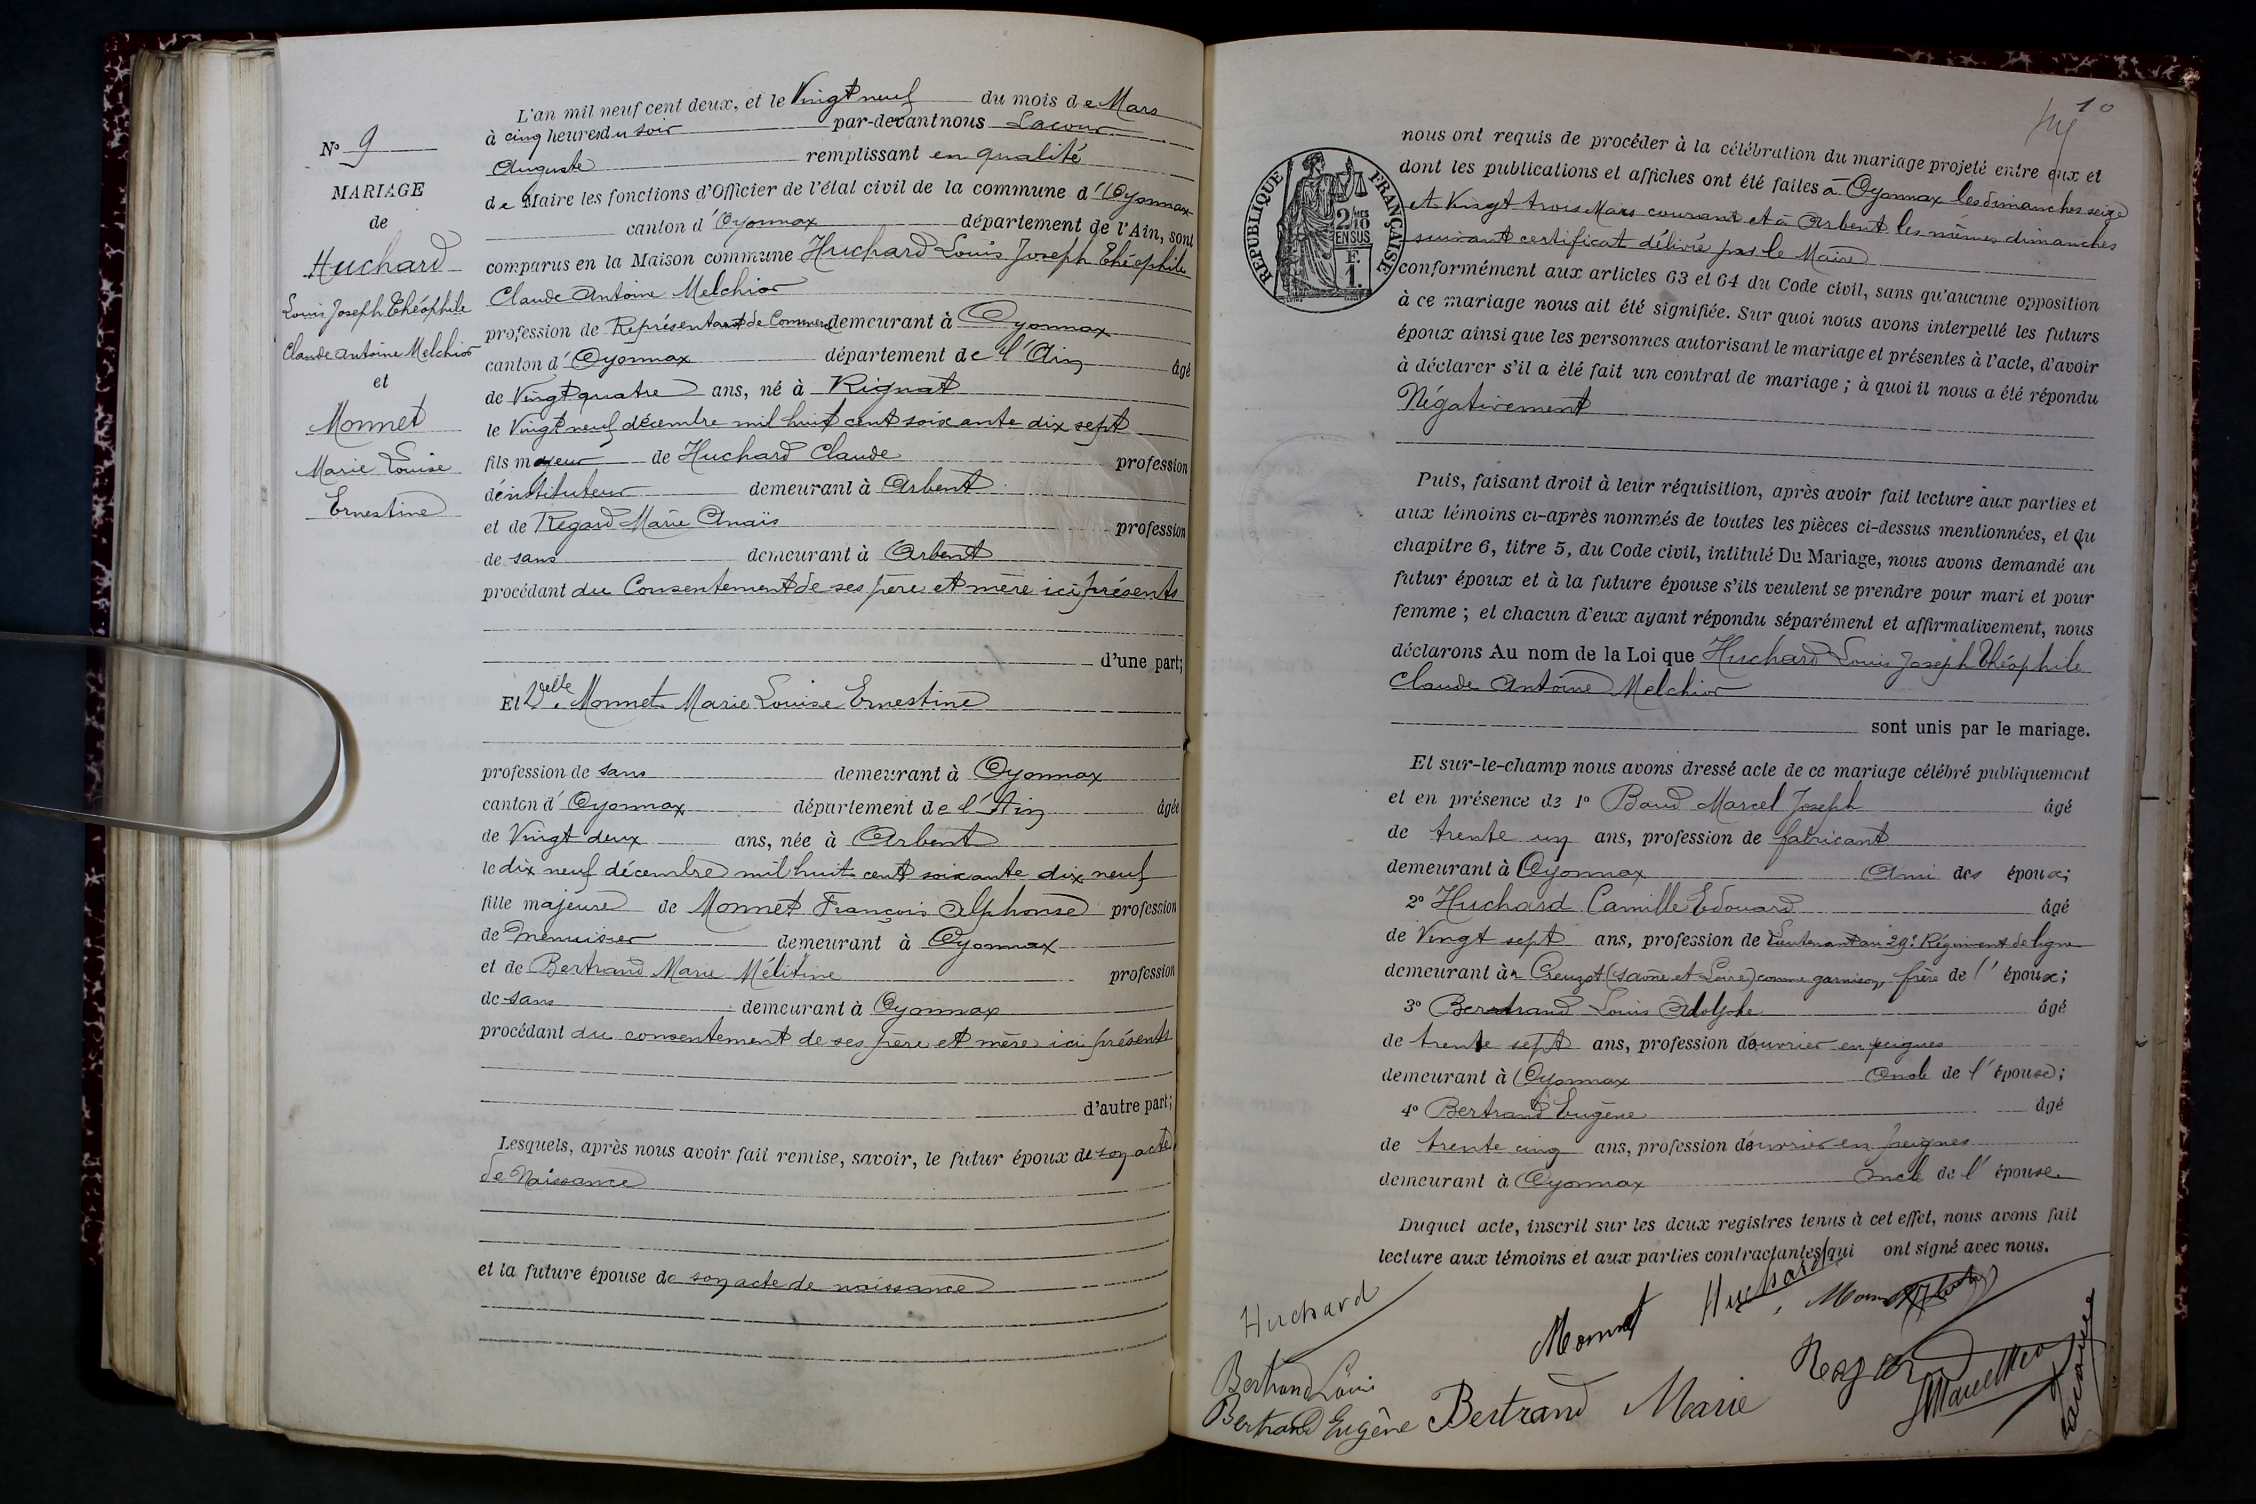 N° 9
MARIAGE
de
Huchard
Louis Joseph Théophile
Claude Antoine Melchior
et
Monnet
Marie Louise
Ernestine
L'an mil neuf cent deux, et le Vingt neuf du mois de Mars
à cinq heures du soir par-devant nous Lacour
Auguste remplissant en qualité
de Maire les fonctions d'Officier de l'état civil de la commune d'Oyonnax
canton d'Oyonnax département de l'Ain, sont
comparus en la Maison commune Huchard Louis Joseph Théophile
Claude Antoine Melchior
profession de Représentant de Commerce demeurant à Oyonnax
canton d'Oyonnax département de l'Ain âgé
de Vingt quatre ans, né à Rignat
le Vingt neuf décembre mil huit cent soixante dix sept
fils majeur de Huchard Claude profession
d'instituteur demeurant à Arbent
et de Regard Marie Anaïs profession
de sans demeurant à Arbent
procédant du Consentement de ses père et mère ici présents
d'une part;
Et Delle Monnet Marie Louise Ernestine
profession de sans demeurant à Oyonnax
canton d'Oyonnax département de l'Ain âgée
de Vingt deux ans, née à Arbent
le dix neuf décembre mil huit cent soixante dix neuf
fille majeure de Monnet François Alphonse profession
de Menuisier demeurant à Oyonnax
et de Bertrand Marie Mélitine profession
de sans demeurant à Oyonnax
procédant du consentement de ses père et mère ici présents
d'autre part;
Lesquels, après nous avoir fait remise, savoir, le futur époux de son acte
de Naissance
et la future épouse de son acte de naissance
10
RÉPUBLIQUE FRANÇAISE
2/10
EN SUS
F.
1.
nous ont requis de procéder à la célébration du mariage projeté entre eux et
dont les publications et affiches ont été faites à Oyonnax les dimanches seize
et Vingt trois Mars courant et à Arbent les mêmes dimanches
suivant certificat délivré par le Maire
conformément aux articles 63 et 64 du Code civil, sans qu'aucune opposition
à ce mariage nous ait été signifiée. Sur quoi nous avons interpellé les futurs
époux ainsi que les personnes autorisant le mariage et présentes à l'acte, d'avoir
à déclarer s'il a été fait un contrat de mariage; à quoi il nous a été répondu
Négativement
Puis, faisant droit à leur réquisition, après avoir fait lecture aux parties et
aux témoins ci-après nommés de toutes les pièces ci-dessus mentionnées, et du
chapitre 6, titre 5, du Code civil, intitulé Du Mariage, nous avons demandé au
futur époux et à la future épouse s'ils veulent se prendre pour mari et pour
femme; et chacun d'eux ayant répondu séparément et affirmativement, nous
déclarons Au nom de la Loi que Huchard Louis Joseph Théophile
Claude Antoine Melchior
sont unis par le mariage.
Et sur-le-champ nous avons dressé acte de ce mariage célébré publiquement
et en présence de 1° Baud Marcel Joseph âgé
de trente un ans, profession de fabricant
demeurant à Oyonnax Ami des époux;
2° Huchard Camille Edouard âgé
de Vingt sept ans, profession de Lieutenant au 29e Régiment de ligne
demeurant à Creuzot (Saône et Loire) comme garnison, frère de l'époux;
3° Bertrand Louis Adolphe âgé
de trente sept ans, profession d'ouvrier en peignes
demeurant à Oyonnax Oncle de l'épouse;
4° Bertrand Eugène âgé
de trente cinq ans, profession d'ouvrier en peignes
demeurant à Oyonnax Oncle de l'épouse
Duquel acte, inscrit sur les deux registres tenus à cet effet, nous avons fait
lecture aux témoins et aux parties contractantes qui ont signé avec nous.
Huchard
Monnet
Huchard
Bertrand Louis
Regard
Bertrand Eugène
Bertrand Marie
Lacour